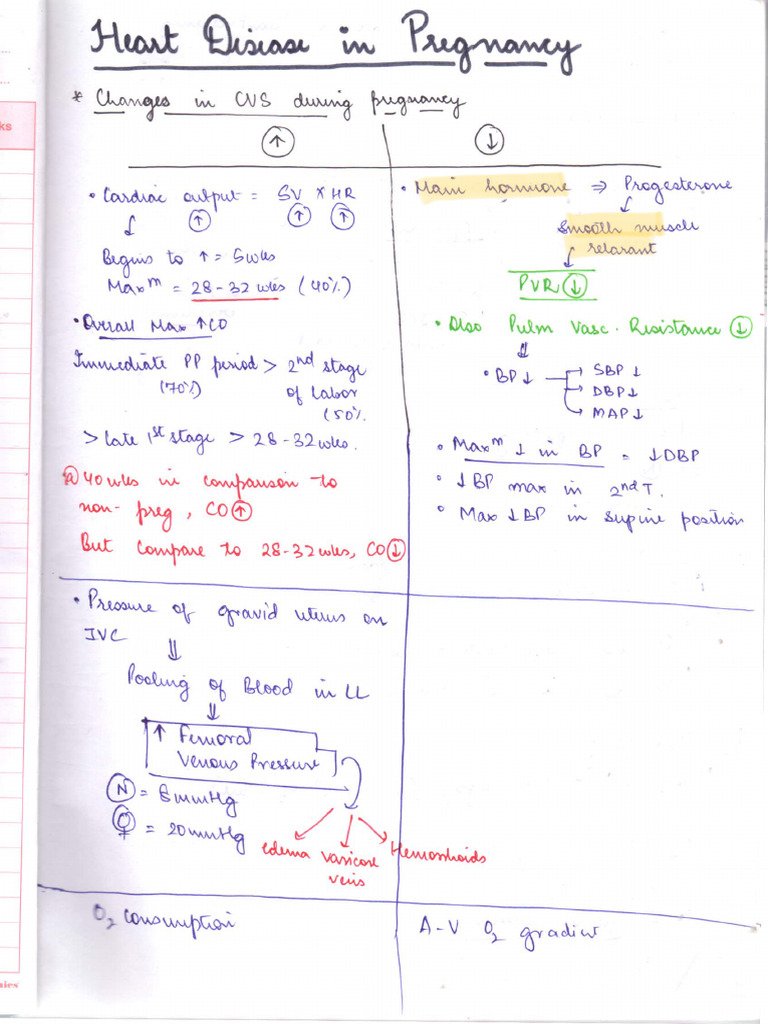 Heart Disease in Pregnancy
* Changes in CVS during pregnancy
↑
↓
• Cardiac output = SV × HR
↑ ↑ ↑
↓
Begins to ↑ = 5wks
Maxᵐ = 28-32 wks (40%)
• Overall Max ↑ CO
Immediate PP period > 2nd stage
(70%) of labor
(50%
> late 1st stage > 28-32wks.
@ 40 wks in comparison to
non-preg, CO ↑
But compare to 28-32 wks, CO ↓
• Main hormone ⇒ Progesterone
↓
Smooth muscle
relaxant
↓
PVR ↓
• Also Pulm Vasc. Resistance ↓
⇓
• BP ↓ → SBP ↓
→ DBP ↓
→ MAP ↓
• Maxᵐ ↓ in BP = ↓DBP
• ↓BP max in 2nd T.
• Max ↓BP in supine position
• Pressure of gravid uterus on
IVC
⇓
Pooling of Blood in LL
⇓
↑ Femoral
Venous Pressure
N = 8mmHg
♀ = 20mmHg
edema varicose Hemorrhoids
veins
O₂ consumption
A-V O₂ gradient
ks